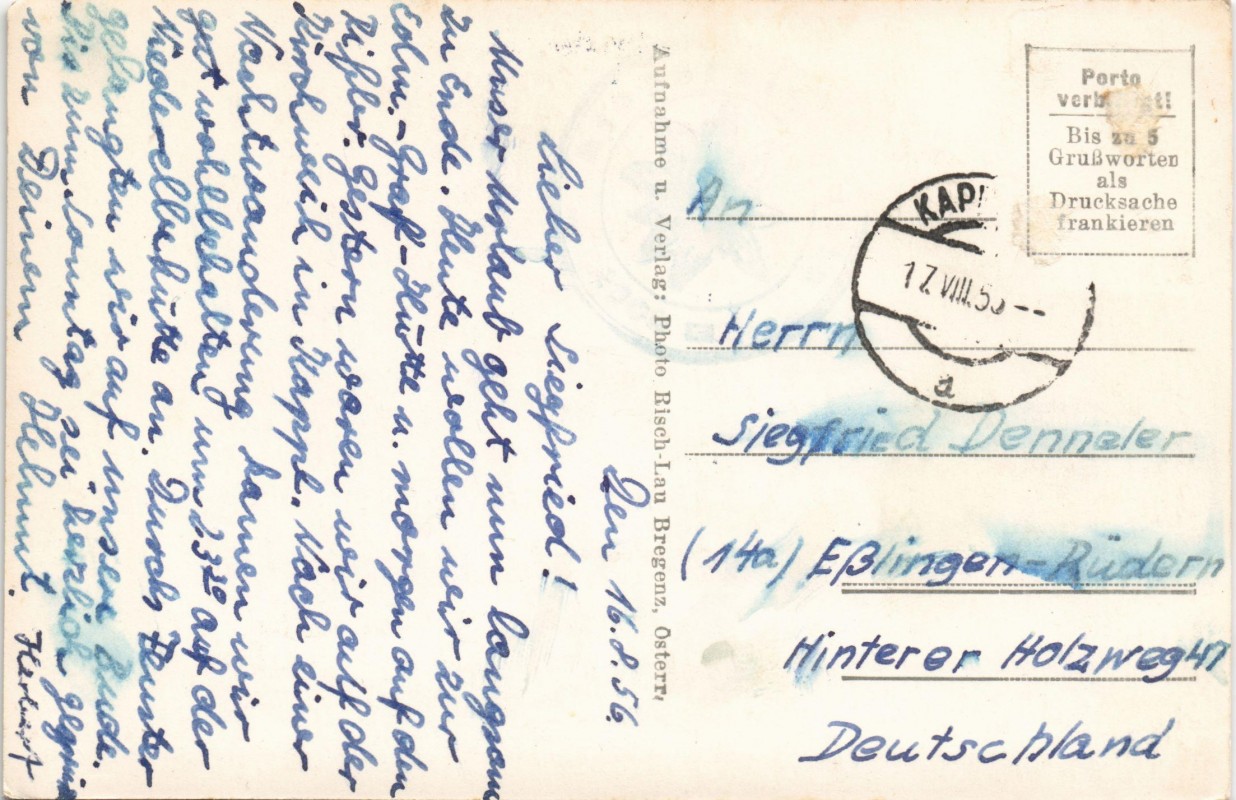 Den 16.8.56.
Lieber Siegfried!
Unser Urlaub geht nun langsam
zu Ende. Heute wollen wir zur
Edm.-Graf-Hütte u. morgen auf den
Rifler. Gestern waren wir auf der
Kirchweih in Kappl. Nach einer
Nachtwanderung kamen wir
gut wohlbehalten um 23²⁰ auf der
Niederelbehütte an. Durchs Fenster
gelangten wir auf unsere Bude.
Bis zum Sonntag sei herzlich gegrüßt
von Deinem Helmut.
Herbert
Aufnahme u. Verlag: Photo Risch-Lau Bregenz, Österr.
Porto
verbilligt!
Bis zu 5
Grußworten
als
Drucksache
frankieren
KAPP
17.VIII.56--
a
An
Herrn
Siegfried Denneler
(14a) Eßlingen-Rüdern
Hinterer Holzweg 47
Deutschland